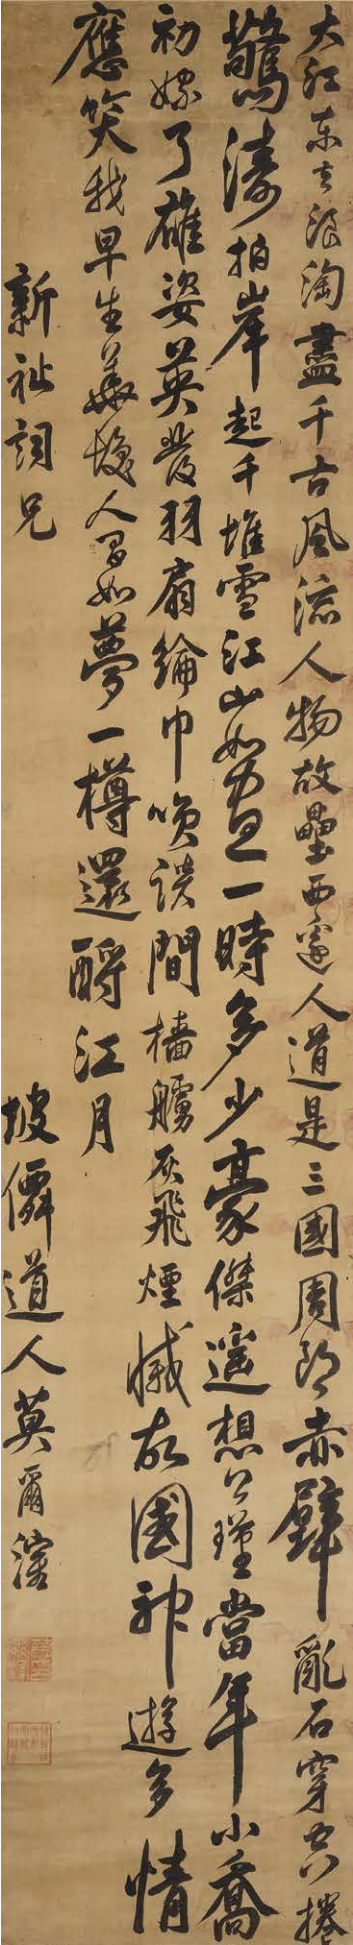 大江東去浪淘盡千古風流人物故壘西邊人道是三國周郎赤壁亂石穿空捲
驚濤拍岸起千堆雪江山如畫一時多少豪傑遙想公瑾當年小喬
初嫁了雄姿英發羽扇綸巾咲談間檣艣灰飛煙滅故國神遊多情
應笑我早生華髮人間如夢一樽還酹江月
新祉詞兄
坡僊道人莫爾